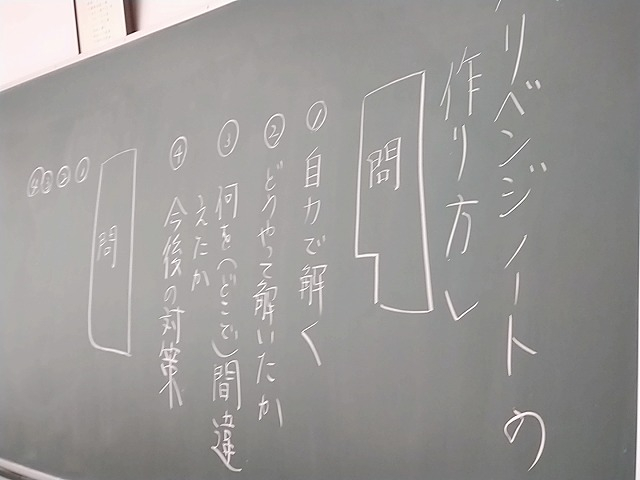 リベンジノートの
作り方レ
問
①自力で解く
②どうやって解いたか
③何を(どこで)間違
えたか
④今後の対策
問
①
②
③
④